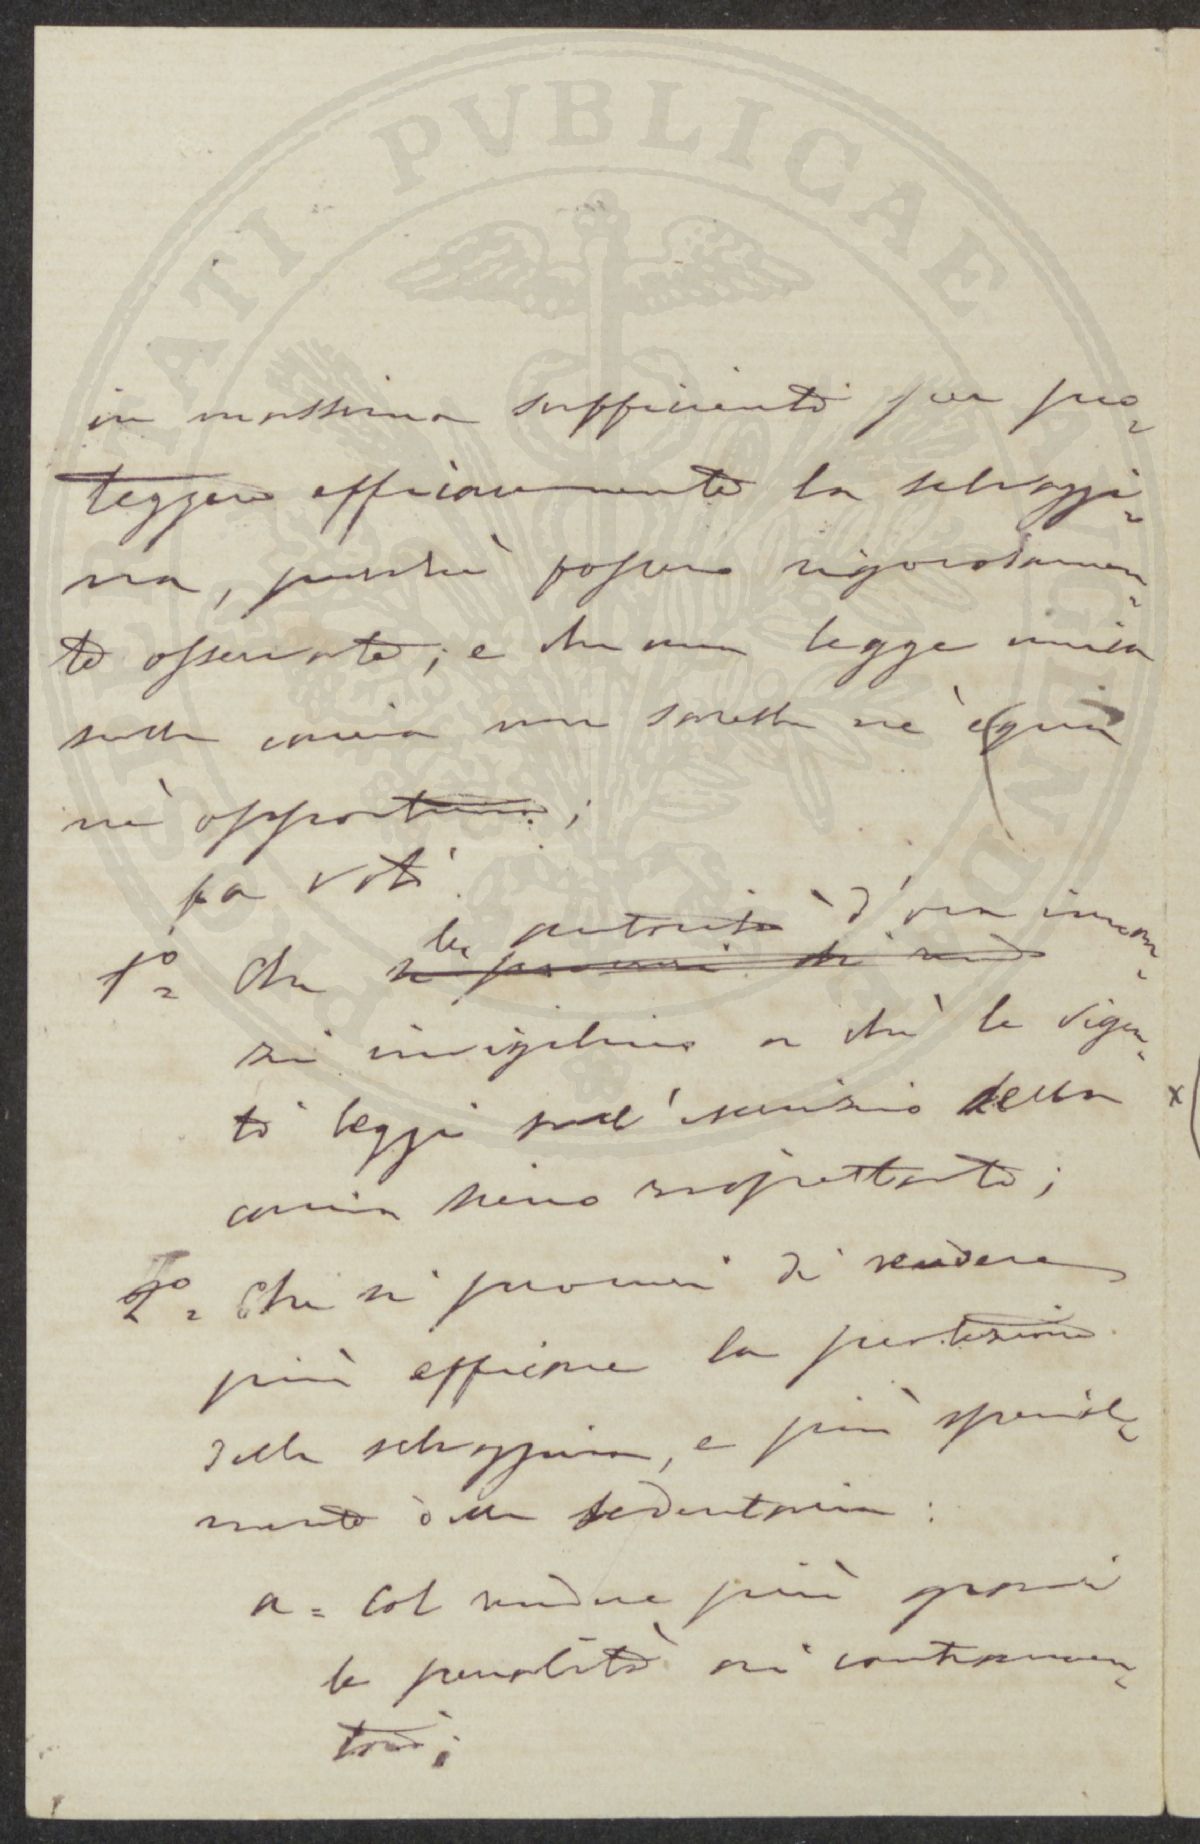 STUDIIS SALUTATI PVBLICAE AUGENDAE
in massima sufficienti per pro=
teggere efficacemente la selvaggi=
na, purchè fossero rigorosamen=
te osservate; e che una legge unica
sulla caccia non sarebbe nè equa
nè opportuna;
fa voti
le autorità d'ora innan=
1º= Che si procuri di
zi invigilino a chè le vigen=
ti leggi sull'esercizio della
caccia sieno rispettate;
2º= Che si procuri di rendere
più efficace la protezione
della selvaggina, e più special=
mente della sedentaria:
a= col rendere più gravi
le penalità ai contravven=
tori;
x